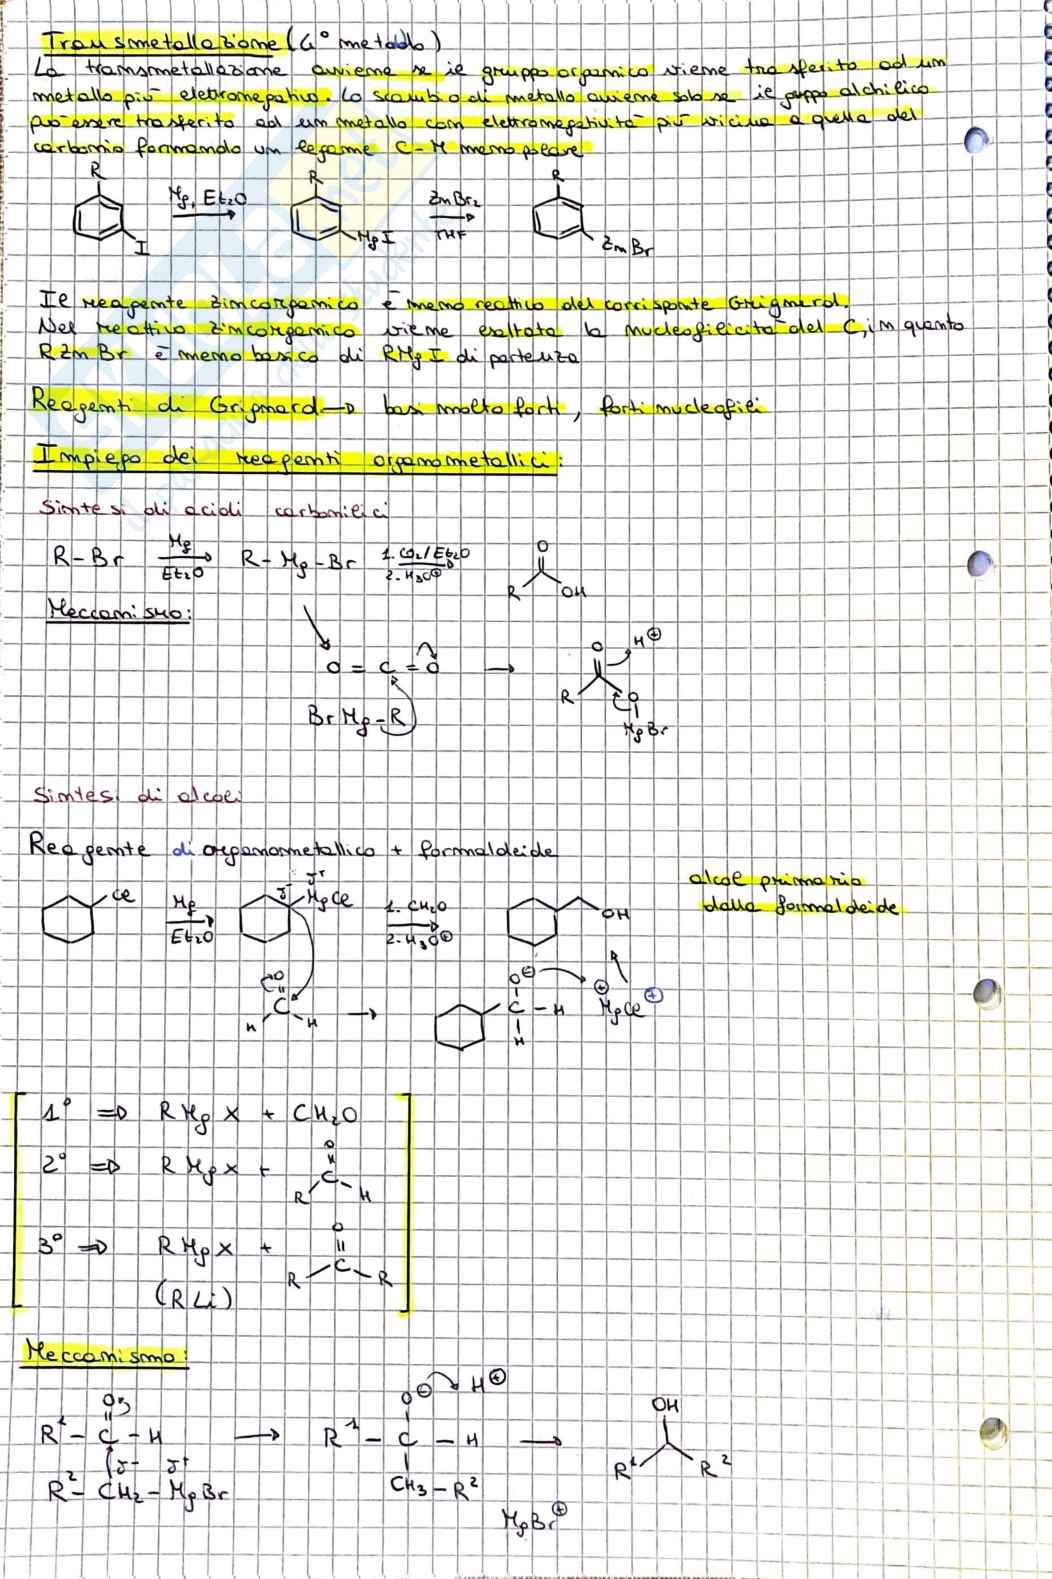 Transmetallazione (4° metodo)
La transmetallazione avviene se il gruppo organico viene trasferito ad un
metallo più elettronegativo. Lo scambio di metallo avviene solo se il gruppo alchilico
può essere trasferito ad un metallo con elettronegatività più vicina a quella del
carbonio formando un legame C-M meno polare
R R R
Mg, Et₂O ZnBr₂
THF
I MgI ZnBr
Il reagente zincorganico è meno reattivo del corrisponte Grignard.
Nel reattivo zincorganico viene esaltata la nucleofilicità del C, in quanto
RZnBr è meno basico di RMgI di partenza
Reagenti di Grignard → basi molto forti, forti nucleofili
Impiego dei reagenti organometallici:
Sintesi di acidi carbonilici
R-Br Mg Et₂O R-Mg-Br 1. CO₂/Et₂O 2. H₃O⊕ O R OH
Meccanismo:
O = C = O → O H⊕
BrMg-R R O
MgBr
Sintesi di alcoli
Reagente di organometallico + formaldeide
alcol primario
dalla formaldeide
Cl Mg Et₂O δ⁻ δ⁺ MgCl 1. CH₂O 2. H₃O⊕ OH
O C H H → O⊖ C - H H ⊕ MgCl ⊕
1° ⇒ RMgX + CH₂O
2° ⇒ RMgX + O C R H
3° ⇒ RMgX + O C R R
(RLi)
Meccanismo:
O O⊖ H⊕ OH
R¹-C-H → R¹-C-H → R¹ R²
δ- δ+
R²-CH₂-MgBr CH₃-R²
MgBr⊕